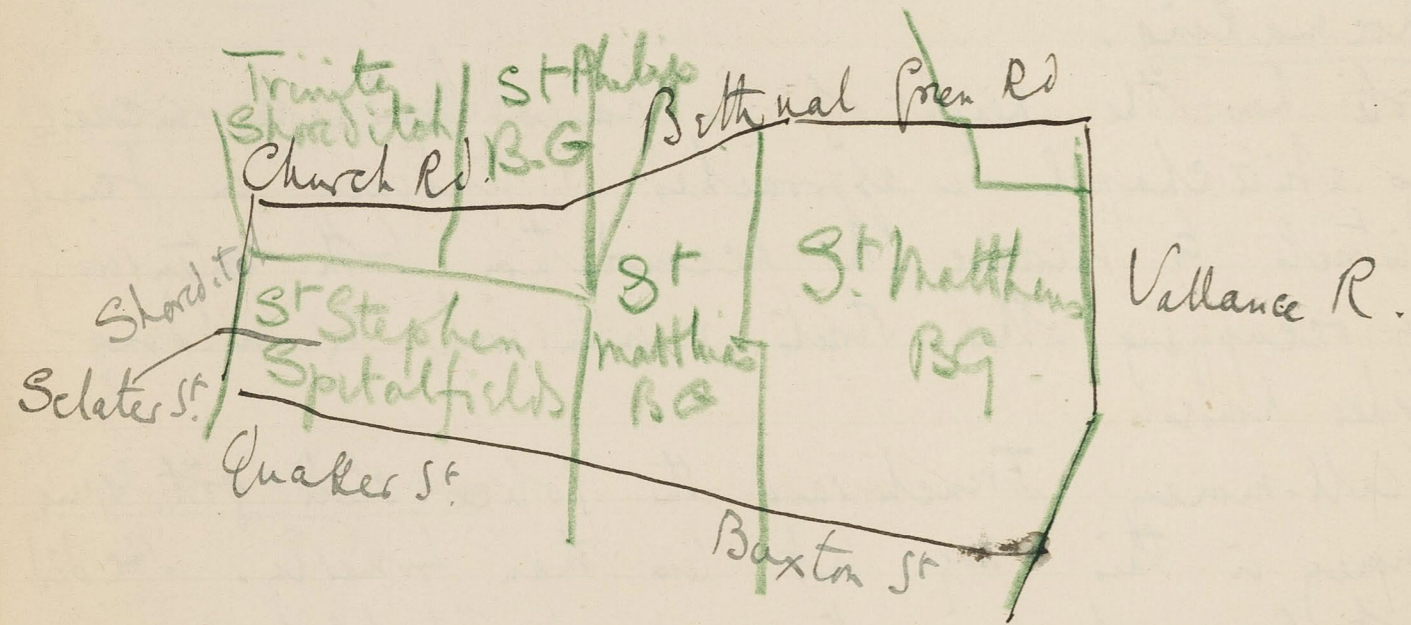 Trinity
Shoreditch
St Philips
B.G
Bethnal Green Rd
Church Rd.
Shoreditch
St Stephen
Spitalfields
St
Matthias
BG
St. Matthews
BG
Vallance R.
Sclater St.
Quaker St.
Buxton St